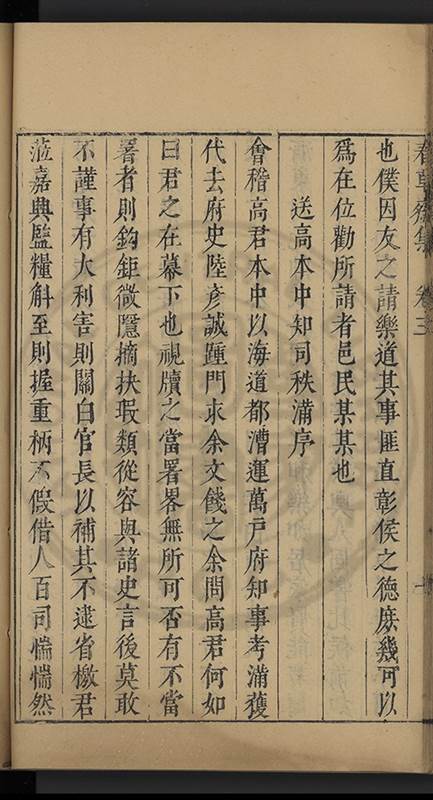 春草齋集 卷三
也僕因友之請樂道其事匪直彰侯之德庶幾可以
爲在位勸所請者邑民某某也
送高本中知司秩滿序
會稽高君本中以海道都漕運萬戸府知事考滿獲
代去府史陸彥誠踵門求余文餞之余問高君何如
曰君之在幕下也視牘之當署畧無所可否有不當
署者則鈎鉅微隱摘抉瑕類從容與諸史言後莫敢
不謹事有大利害則關白官長以補其不逮省檄君
蒞嘉興監糧斛至則握重柄不假借人百司惴惴然